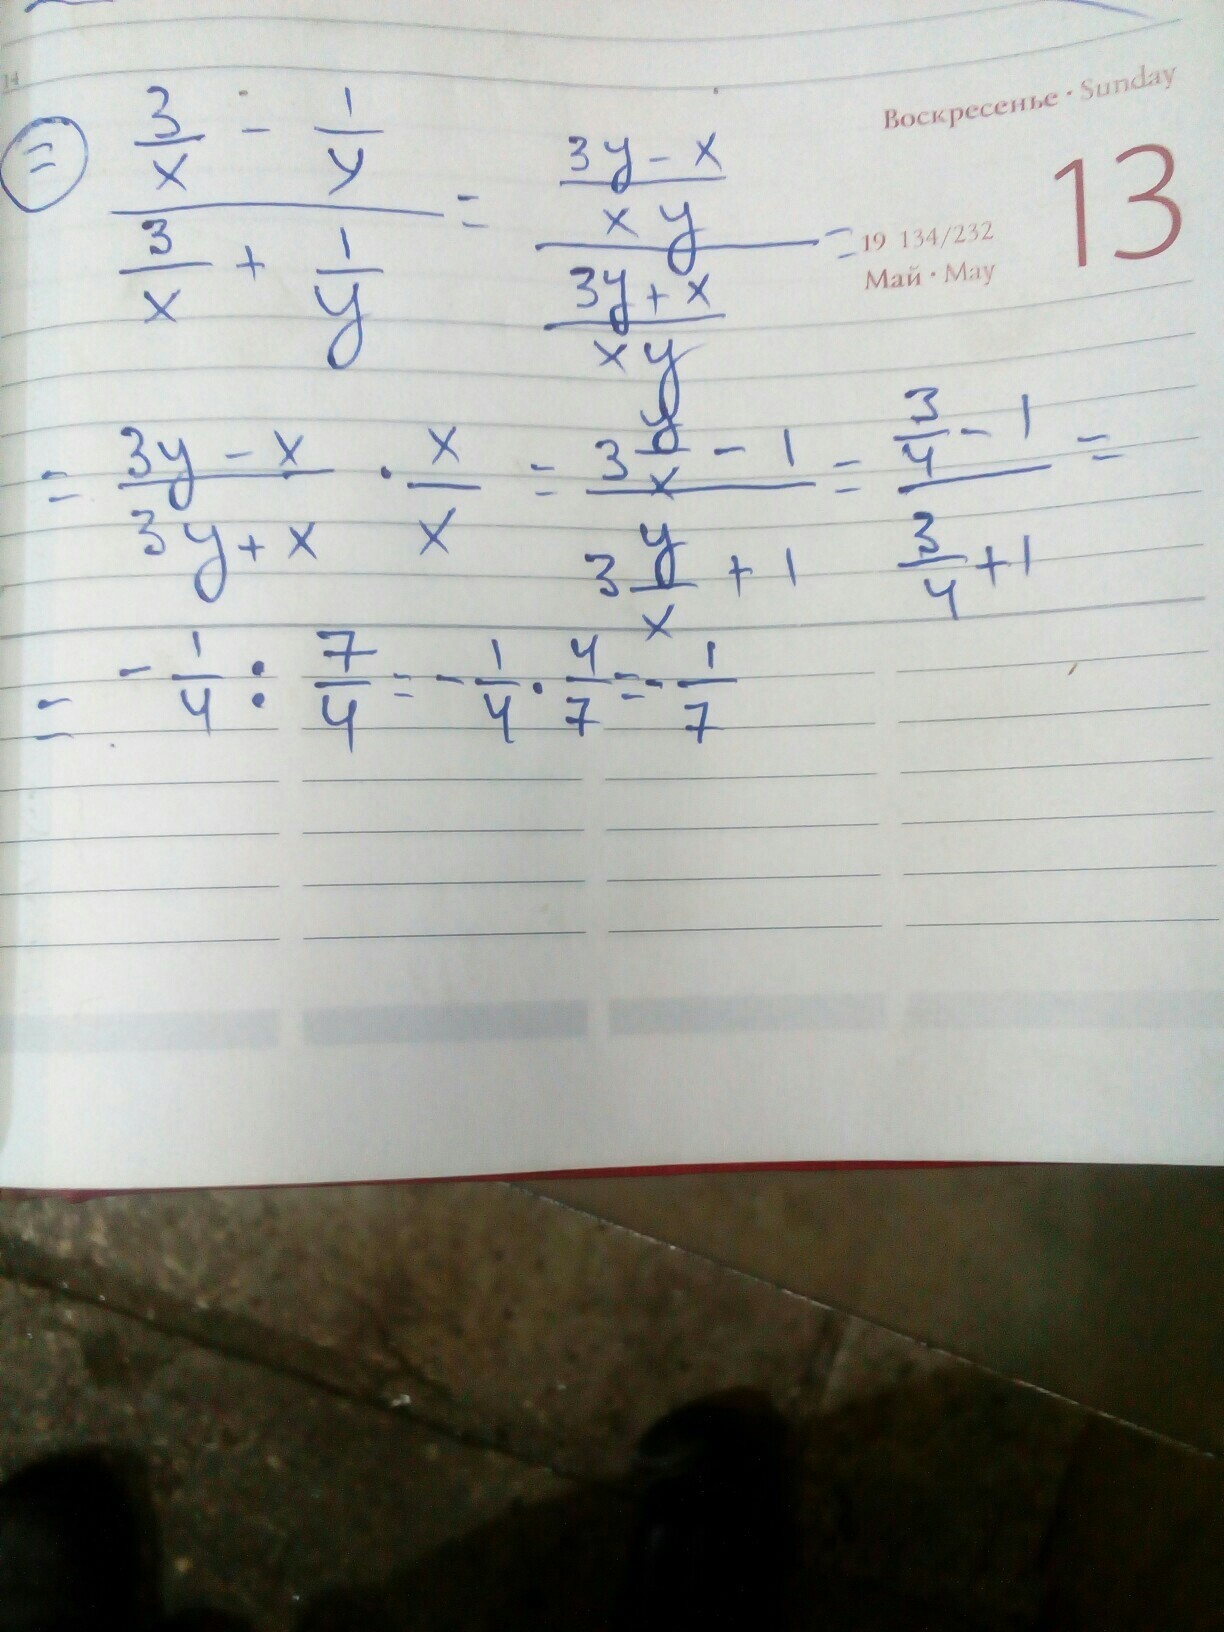 14
Воскресенье · Sunday
13
19 134/232
Май · May
= (3/x - 1/y)/(3/x + 1/y) = ((3y - x)/(xy))/((3y + x)/(xy)) =
= (3y - x)/(3y + x) · x/x = (3 y/x - 1)/(3 y/x + 1) = (3/4 - 1)/(3/4 + 1) =
= - 1/4 : 7/4 = - 1/4 · 4/7 = - 1/7